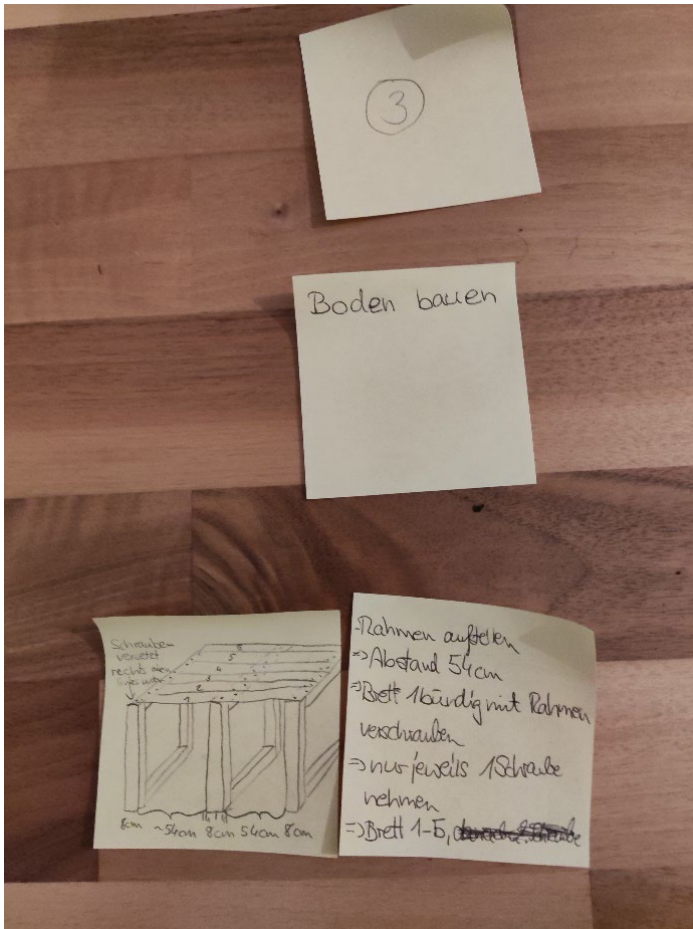 3
Boden bauen
Schrauben
versetzt
rechts
6
5
4
3
2
1
8cm ~54cm 8cm 54cm 8cm
-Rahmen aufstellen
=> Abstand 54cm
=> Brett 1 bündig mit Rahmen
verschrauben
=> nur jeweils 1 Schraube
nehmen
=> Brett 1-5,